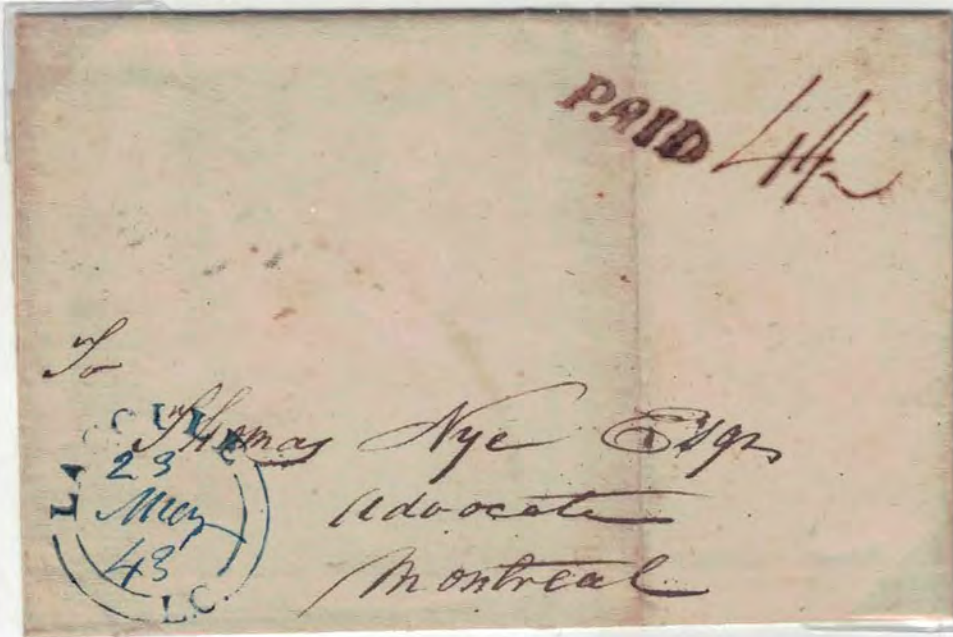 PAID 4½
To
Thomas Nye Esqr
Advocate
Montreal
23
May
43
L.C.